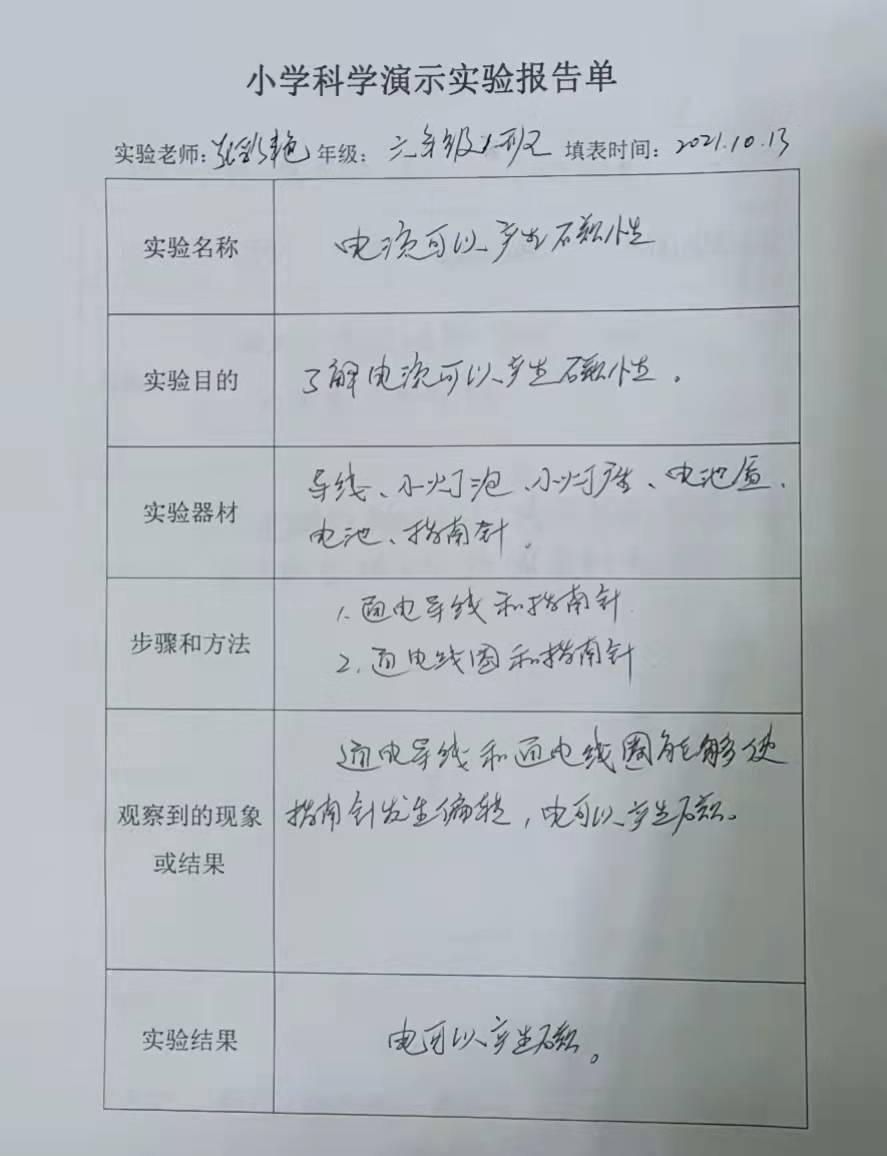 小学科学演示实验报告单
实验老师:张彩艳 年级: 六年级1班 填表时间: 2021.10.13
实验名称 电流可以产生磁性
实验目的 了解电流可以产生磁性。
实验器材
导线、小灯泡、小灯座、电池盒、
电池、指南针。
步骤和方法
1. 通电导线和指南针
2. 通电线圈和指南针
观察到的现象
或结果
通电导线和通电线圈能够使
指南针发生偏转,电可以产生磁。
实验结果 电可以产生磁。